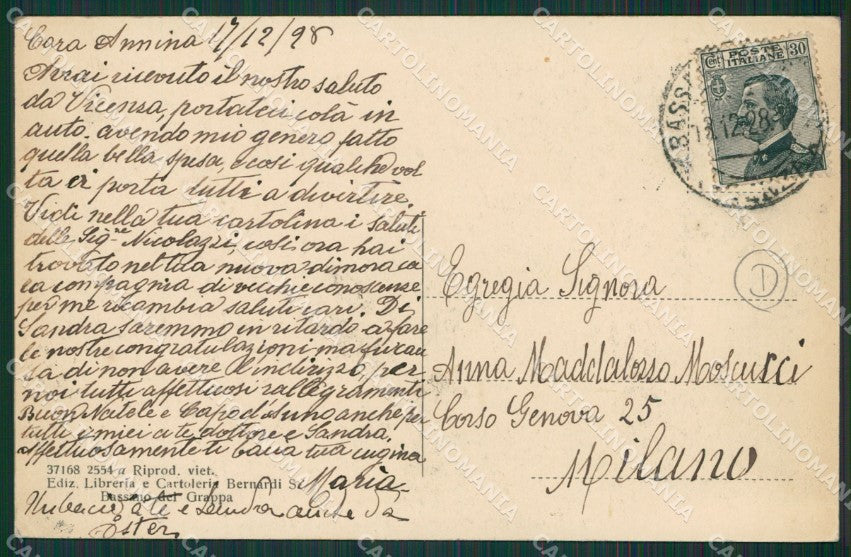 Cara Annina 17/12/28
Avrai ricevuto il nostro saluto
da Vicenza, portateci colà in
auto. avendo mio genero fatto
quella bella spesa, e così qualche vol
ta ci porta tutti a divertire.
Vidi nella tua cartolina i saluti
delle Sig.ne Nicolazzi, così ora hai
trovato nel tua nuova dimora ca
ra compagnia di vecchie conoscenze
per me ricambia saluti cari. Di
Sandra saremmo in ritardo a fare
le nostre congratulazioni ma fu cau
sa di non avere l'indirizzo, per
noi tutti affettuosi rallegramenti
Buon Natale e Capo d'Anno anche per
tutti i miei a te dottore e Sandra.
Affettuosamente ti bacia tua cugina
Maria
37168 2554 a Riprod. viet.
Ediz. Libreria e Cartoleria Bernardi
Bassano del Grappa
Un bacio a te e Sandra anche da
Ester
Cent 30
POSTE
ITALIANE
BASSA
18.12.28
D
Egregia Signora
Anna Maddalozzo Moscucci
Corso Genova 25
Milano
CARTOLINOMANIA